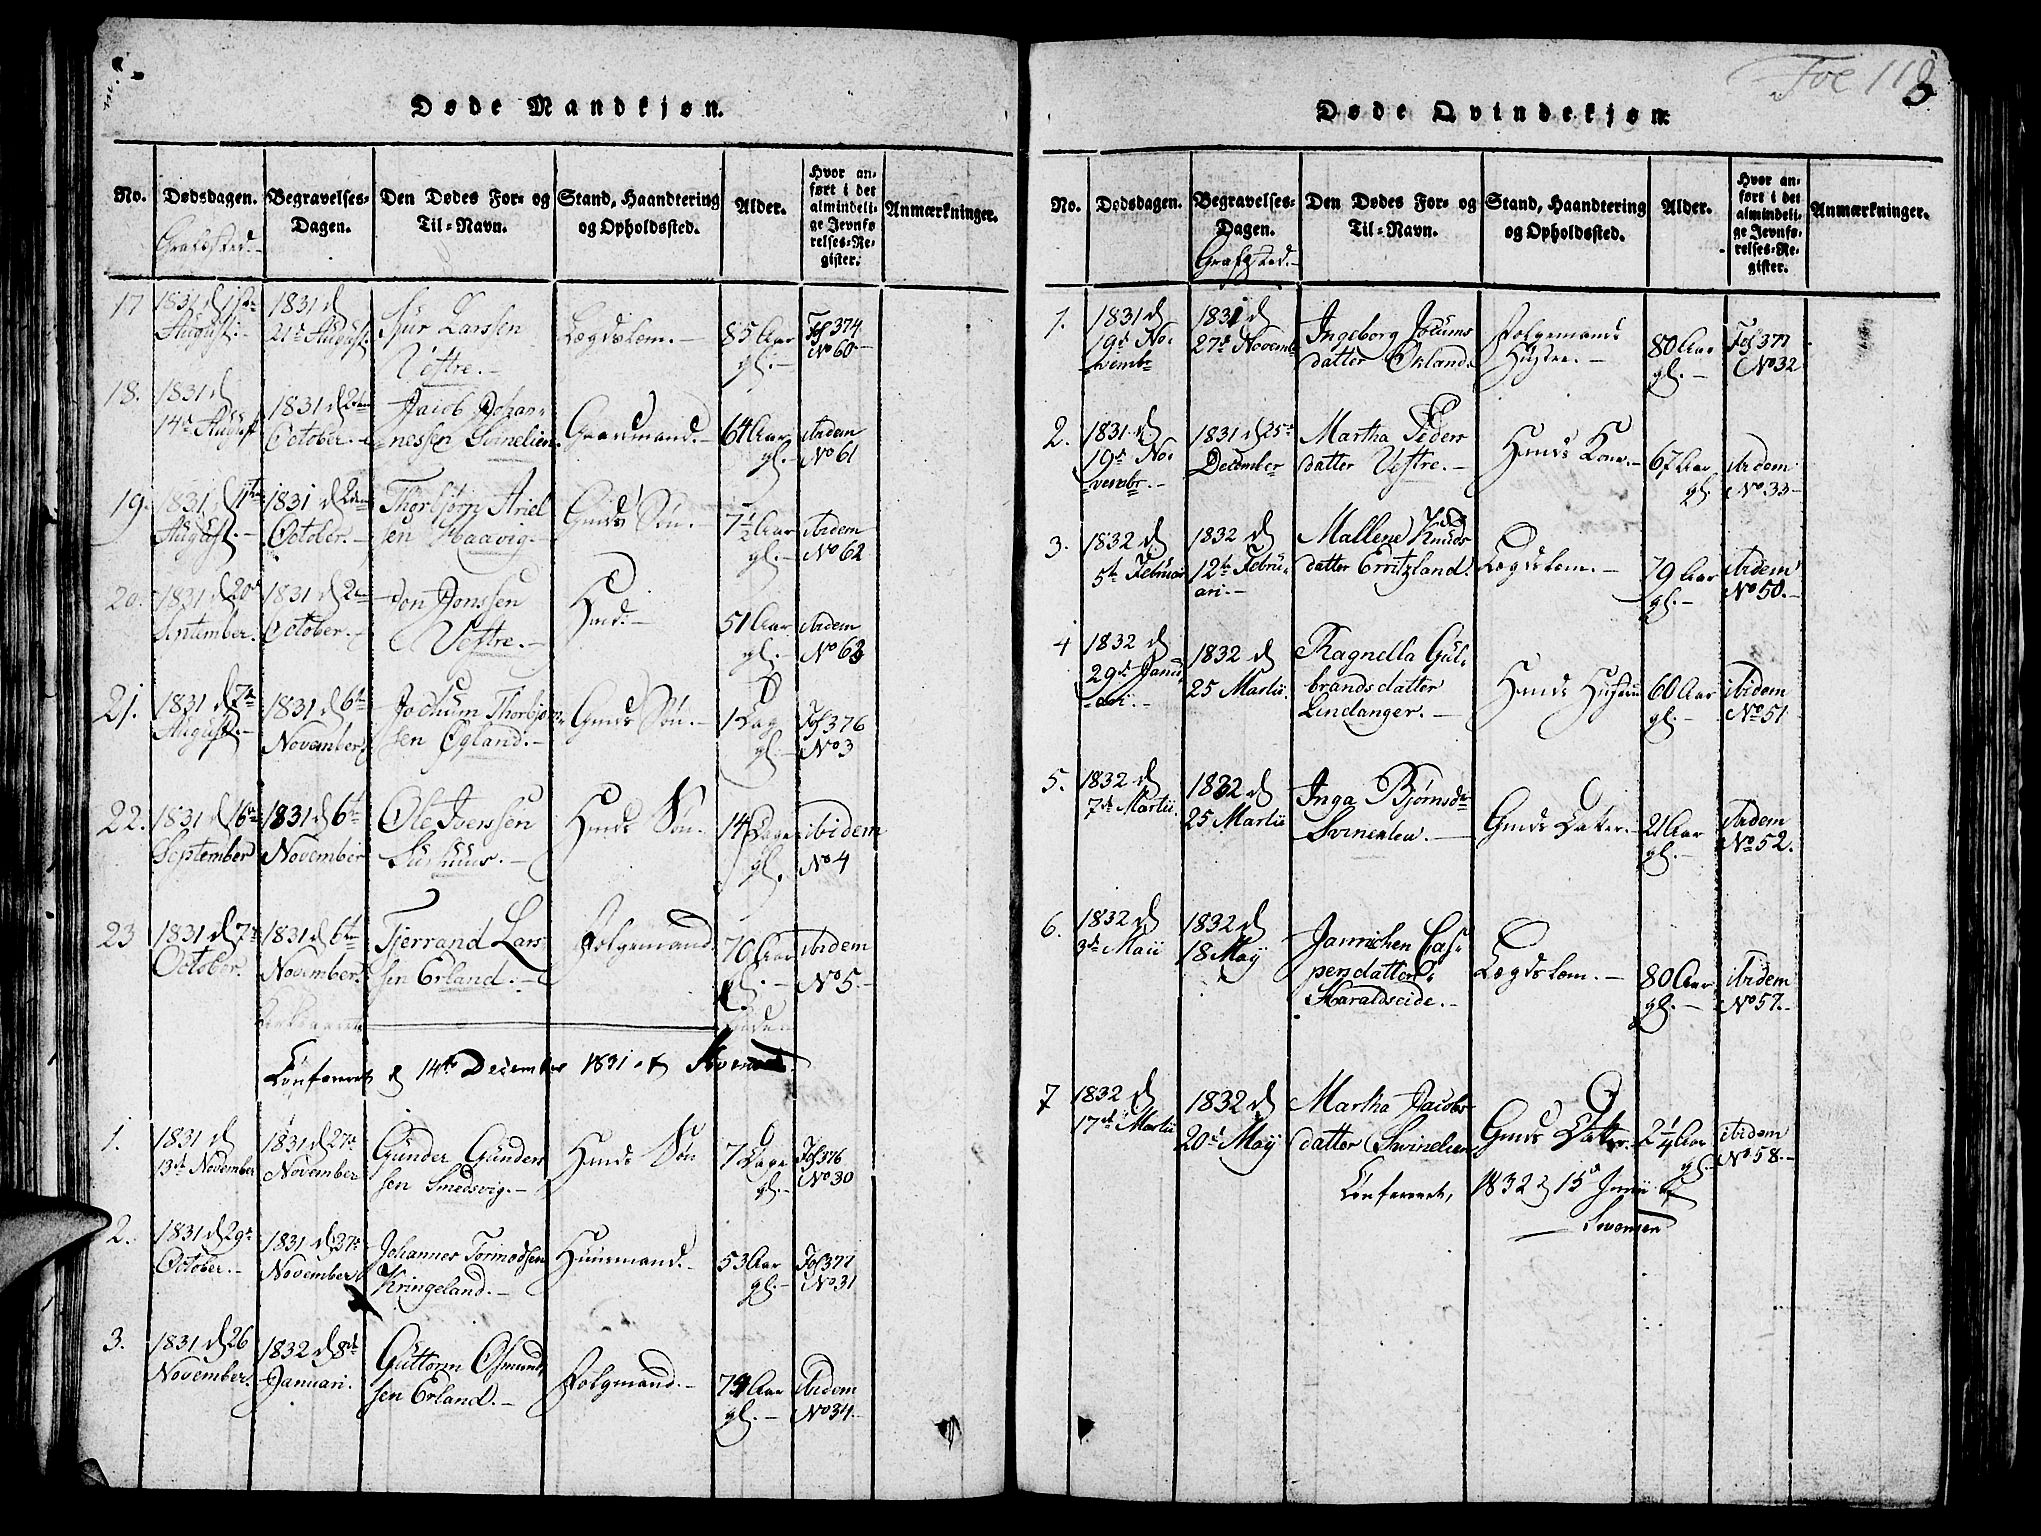 Døde Mandkjøn.
No.
Dødsdagen.
Begravelses-
Dagen.
Den Dødes For- og
Til-Navn.
Stand, Haandtering
og Opholdssted.
Alder.
Hvor an-
ført i det
almindeli-
ge Jevnfø-
relses-Re-
gister.
Anmærkninger.
17
1831 d
August.
1831 d
21de August.
Siur Larssen
Vestre.
Lægdslem.
85 Aar
gl.
Fol 374
No 60
18.
1831 d
14de August
1831 d 2den
October.
Jacob Johan-
nessen Svinelien.
Gaardmand.
64 Aar
gl.
ibidem
No 61
19.
1831 d
August.
1831 d 2den
October.
Thorbjørn Ariel
sen Haavig.
Gmds Søn.
7 1/2 Aar
gl.
ibidem
No 62
20.
1831 d 20de
September.
1831 d 2den
October.
Jon Jonssen
Vestre.
Hmd.
51 Aar
gl.
ibidem
No 63
21.
1831 d 7de
August.
1831 d 6te
November
Jochum Thorbjørn-
sen Øgland.
Gmds Søn.
1 Dag
gl.
Fol 376
No 3
22.
1831 d 16de
September
1831 d 6te
November
Ole Iverssen
Hmds Søn.
14 Dage
gl.
ibidem
No 4
23
1831 d 7de
October.
1831 d 6te
November.
Tjerrand Lars
sen Erland.
Folgemand.
70 Aar
gl.
ibidem
No 5.
Confereret d 14de December 1831 af Svensen
1.
1831 d
13de November
1831 d 27de
November
Gunder Gunders
sen Smedsvig.
Hmds Søn
7 Dage
gl.
Fol 376
No 30
2.
1831 d 29de
October.
1831 d 27de
November
Johannes Tormodsen
Kringeland.
Huusmand.
53 Aar
gl.
Fol 377
No 31
3.
1831 d 26
November.
1832 d 8de
Januari.
Guttorm Osmund
sen Erland.
Folgmand.
74 Aar
gl.
ibidem
No 34
Foe 118
Døde Qvindekjøn.
No.
Dødsdagen.
Begravelses-
Dagen.
Den Dødes For- og
Til-Navn.
Stand, Haandtering
og Opholdssted.
Alder.
Hvor an-
ført i det
almindeli-
ge Jevnfø-
relses-Re-
gister.
Anmærkninger.
1.
1831 d
19de No-
vembr
1831 d
27de Novembr
Ingeborg Jocums
datter Økland.
Folgemands
Hustru.
80 Aar
gl.
Fol 377
No 32
2.
1831 d
19de No-
vembr.
1831 d 25de
December
Martha Peders
datter Vestre.
Hmds Kone.
67 Aar
gl.
ibidem
No 33
3.
1832 d
5te Februar
1832 d
12te Febru-
ari.
Mallene Knuds
datter Erritzland.
Lægdslem.
79 Aar
gl.
ibidem
No 50.
4
1832 d
29de Janu-
ari.
1832 d
25 Martii.
Ragnella Gul-
brandsdatter
Lindanger.
Hmds Hustru
60 Aar
gl.
ibidem
No 51
5.
1832 d
7de Martii.
1832 d
25 Martii
Inga Bjørnsdr
Svinelien.
Gmds Datter.
21 Aar
gl.
ibidem
No 52.
6.
1832 d
3de Maii
1832 d
18 May
Jannichen Cas-
persdatter
Haraldseide.
Lægdslem.
80 Aar
gl.
ibidem
No 57.
7
1832 d
17de Martii
1832 d
20de May
Martha Jacobs
datter Svinelien
Gmds Datter.
2 1/4 Aar
gl.
ibidem
No 58.
Confereret, 1832 d 15de Junii af
Svensen